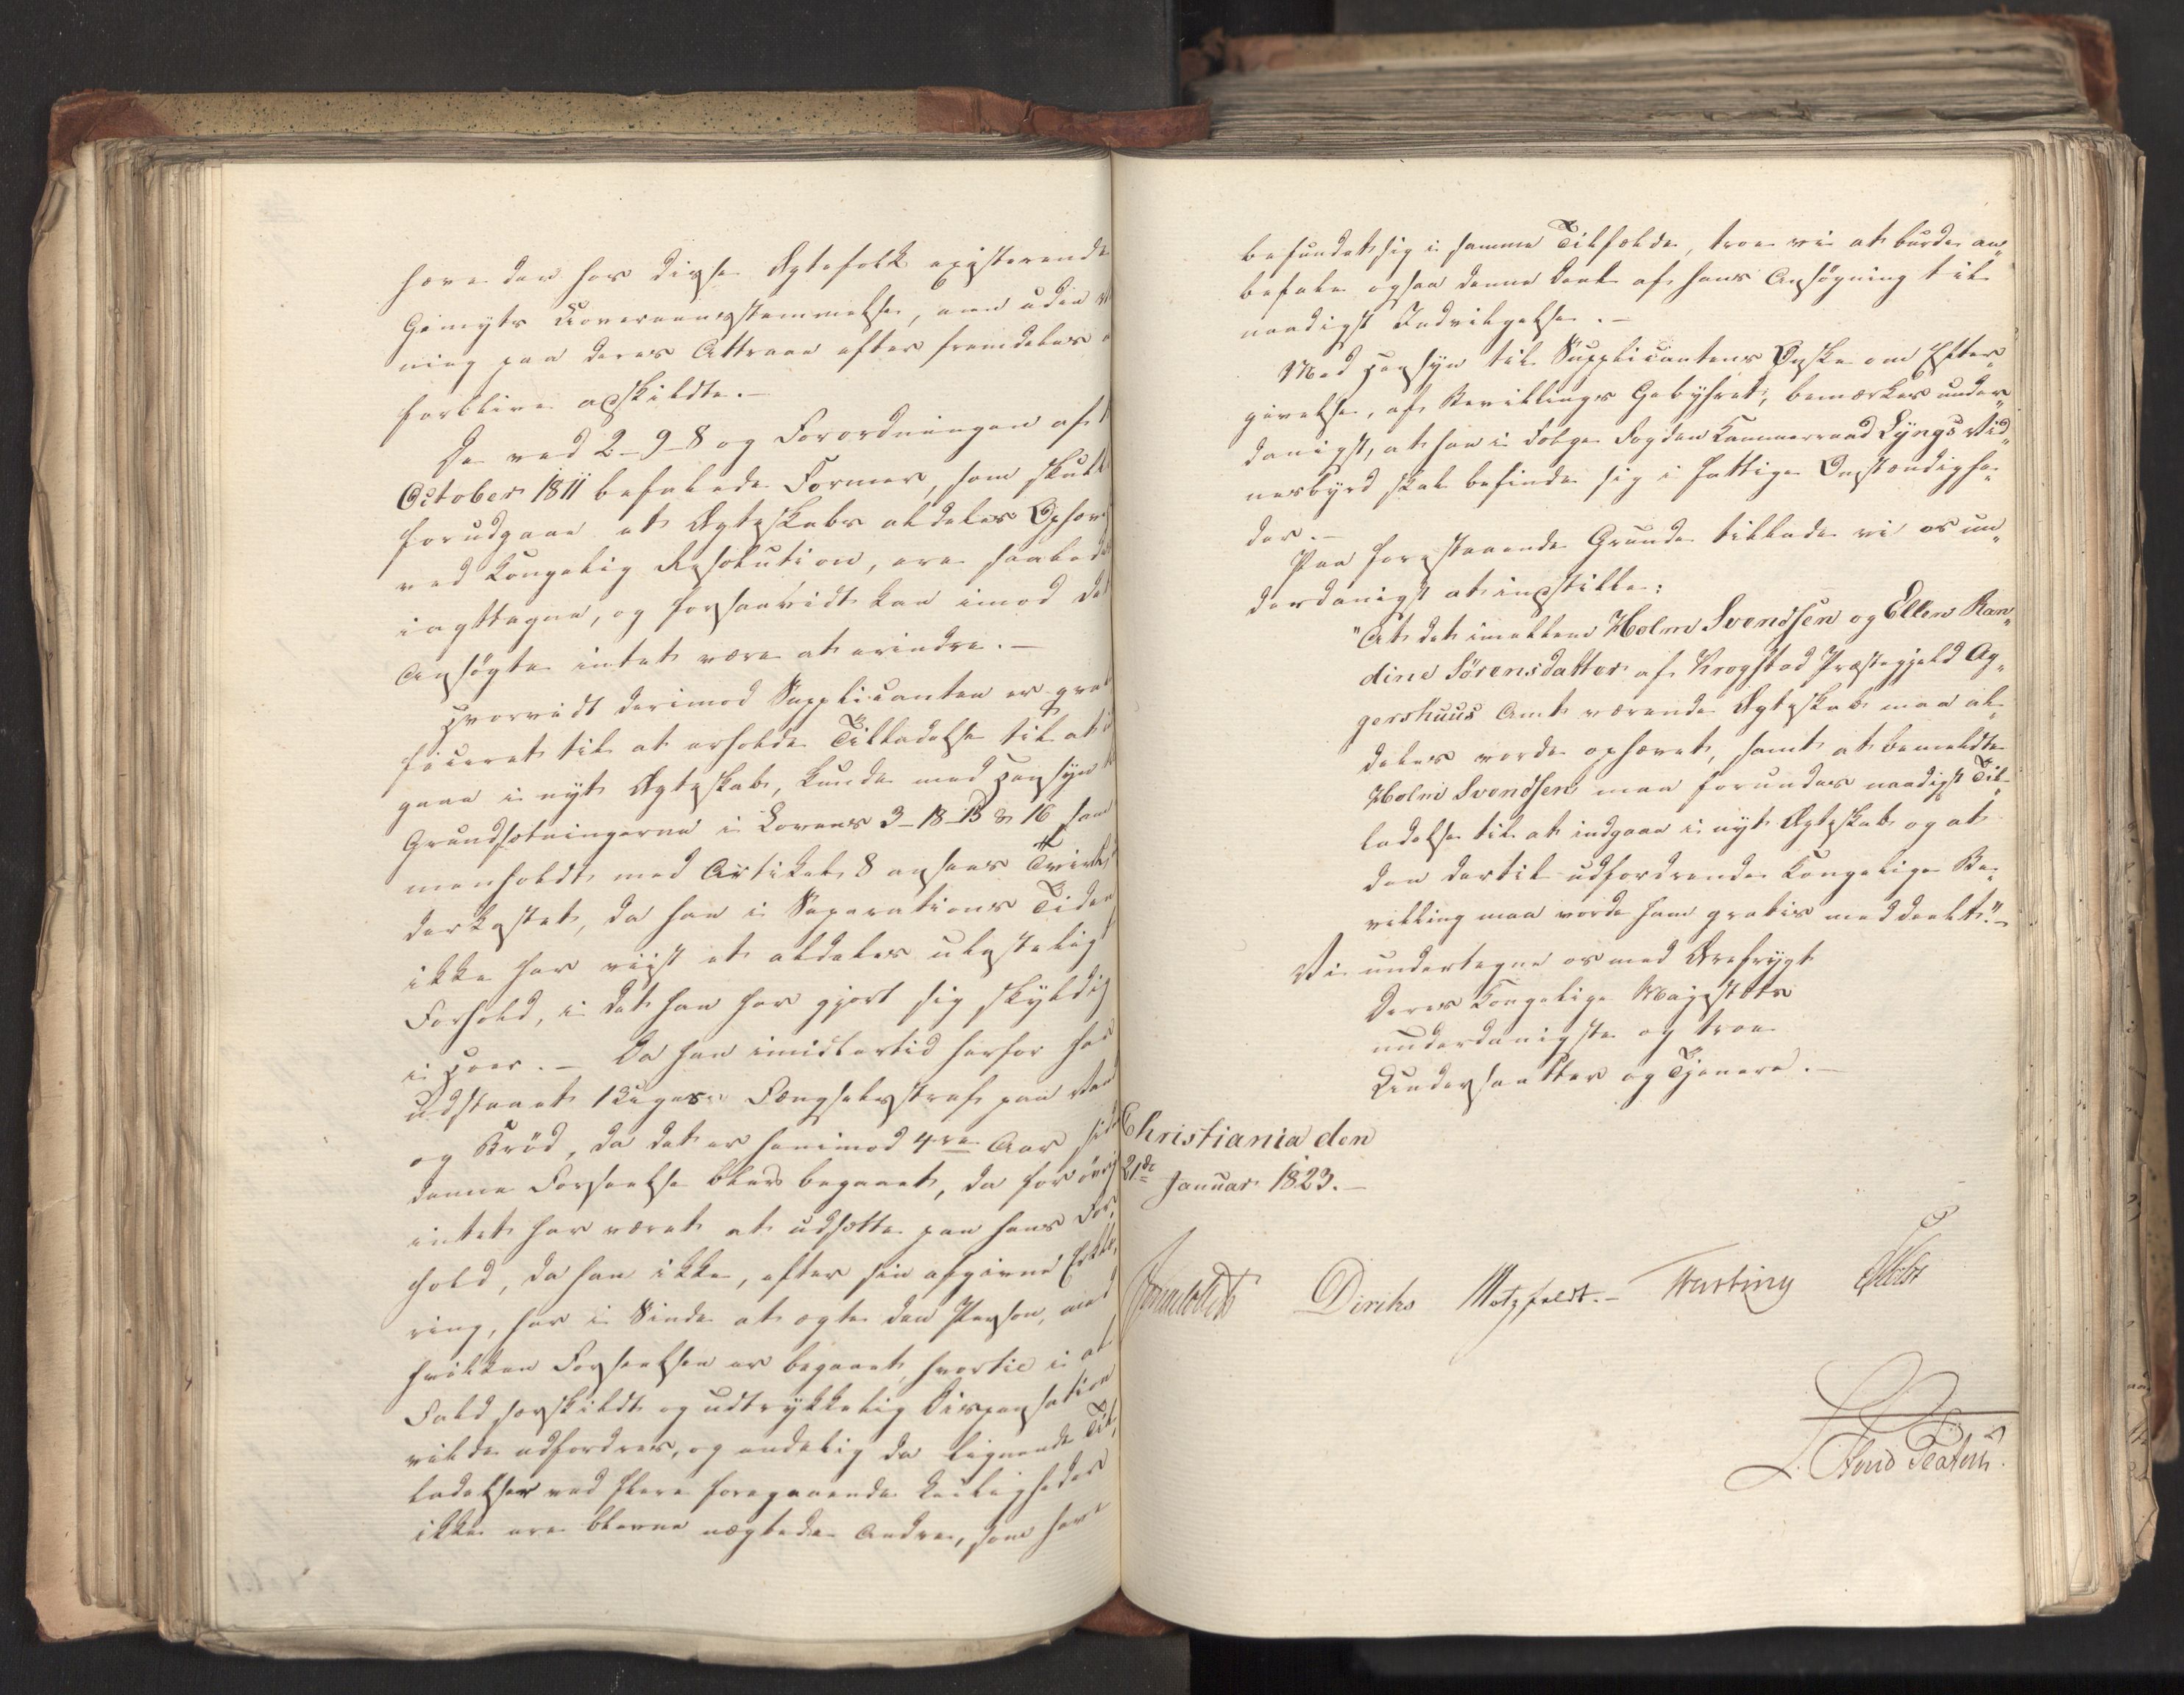 hæve den hos disse Ægtefolk existerende
Gemyts Uoverensstemmelse, men uden
ning paa deres Attraae efter fremdeles
forblive adskildte.–
De ved 2–9–8 og Forordningen af
October 1811 befalede Former, som skulle
forudgaae et Ægteskabs aldeles Ophæv
ved Kongelig Resolution, ere saaledes
iagttagne, og forsaavidt kan imod det
Ansøgte intet være at erindre.–
Hvorvidt derimod Supplicanten er qvali
ficeret til at erholde Tilladelse til at
gaae i nyt Ægteskab, kunde med Hensyn
Grundsætningerne i Lovens 3–18–15 & 16 sam
menholdt med Artikel 8 ansees Tvivl
derkastet, da han i Separations Tiden
ikke har viist et aldeles ulasteligt
Forhold, i det han har gjort sig skyldig
i Hoer.– Da han imidlertid herfor har
udstaaet Fængselsstraf paa Vand
og Brød, da det er henimod 4re Aar siden
denne Forseelse blev begaaet, da for øvrigt
intet har været at udsætte paa hans For„
hold, da han ikke, efter sin afgivne Erklæ„
ring, har i Sinde at ægte den Person, med
hvilken Forseelsen er begaaet, hvortil i al
Fald særskildt og udtrykkelig Dispensation
vilde udfordres, og endelig da lignende Til„
ladelser ved flere foregaaende Leiligheder
ikke ere blevne nægtede Andre, som have
befundet sig i samme Tilfælde, troe vi at burde an„
befale ogsaa denne Deel af hans Ansøgning til
naadigst Indvilgelse.–
Med Hensyn til Supplicantens Ønske om Efter„
givelse, af Bevillings Gebyhret, bemærkes under„
danigst, at han i Følge Fogden Kammerraad Lyngs Vid„
nesbyrd skal befinde sig i fattige Omstændighe„
der.–
Paa foranstaaende Grunde tillade vi os un„
derdanigst at indstille:
"At det imellem Holm Svendsen og Ellen Ran„
dine Sørensdatter af Krogstad Præstegjeld Ag„
gershuus Amt værende Ægteskab maa al„
deles vorde ophævet, samt at bemeldte
Holm Svendsen maa forundes naadigst Til„
ladelse til at indgaae i nyt Ægteskab og at
den dertil udfordrende Kongelige Be„
villing maa vorde ham gratis meddeelt."–
Vi undertegne os med Ærefrygt
Deres Kongelige Majestæts
underdanigste og troe
Undersaatter og Tjenere.–
Christiania den
21de Januar 1823.–
Diriks Motzfeldt.–